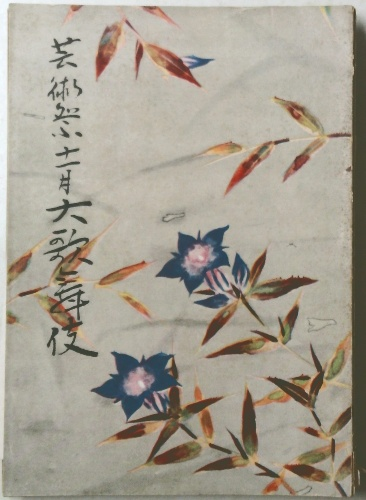 芸術祭十一月大歌舞伎